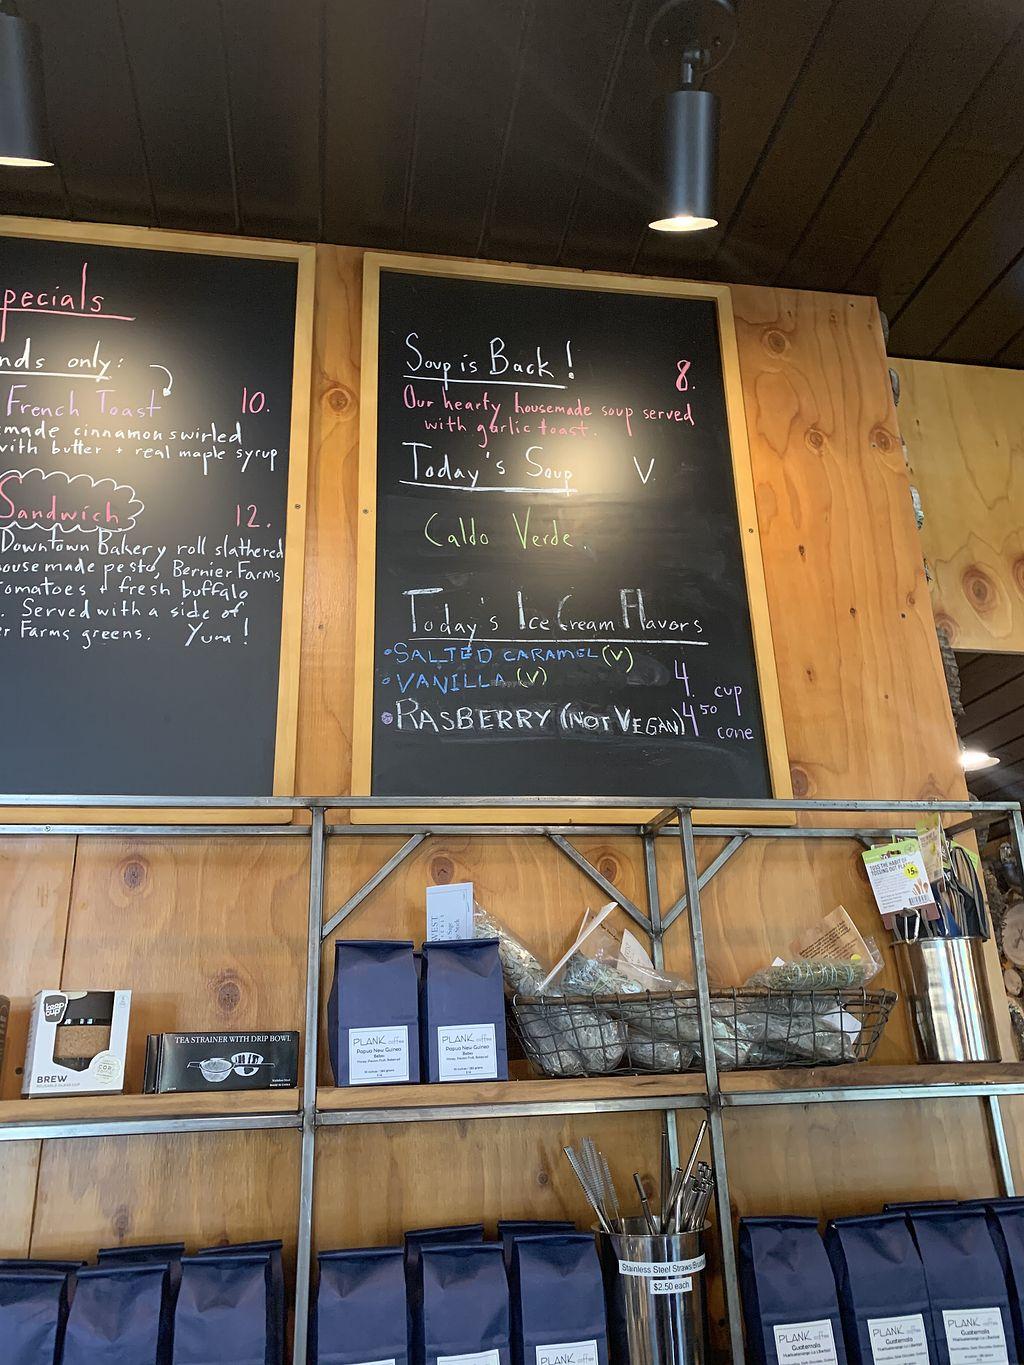 pecials
nds only:
French Toast 10.
made cinnamon swirled
with butter + real maple syrup
Sandwich 12.
Downtown Bakery roll slathered
ouse made pesto, Bernier Farms
omatoes + fresh buffalo
. Served with a side of
r Farms greens. Yum!
Soup is Back!
8.
Our hearty housemade soup served
with garlic toast.
Today's Soup V.
Caldo Verde.
Today's Ice Cream Flavors
• SALTED CARAMEL (V)
• VANILLA (V)
4. cup
• RASBERRY (NOT VEGAN)
4.50 cone
TOSS THE HABIT OF
TOSSING OUT PLASTIC
keep
cup
BREW
TEA STRAINER WITH DRIP BOWL
PLANK coffee
Papua New Guinea
PLANK coffee
Papua New Guinea
Stainless Steel Straws/
$2.50 each
PLANK coffee
PLANK coffee
Guatemala
PLANK coffee
Guatemala
PLANK coffee
Guatemala